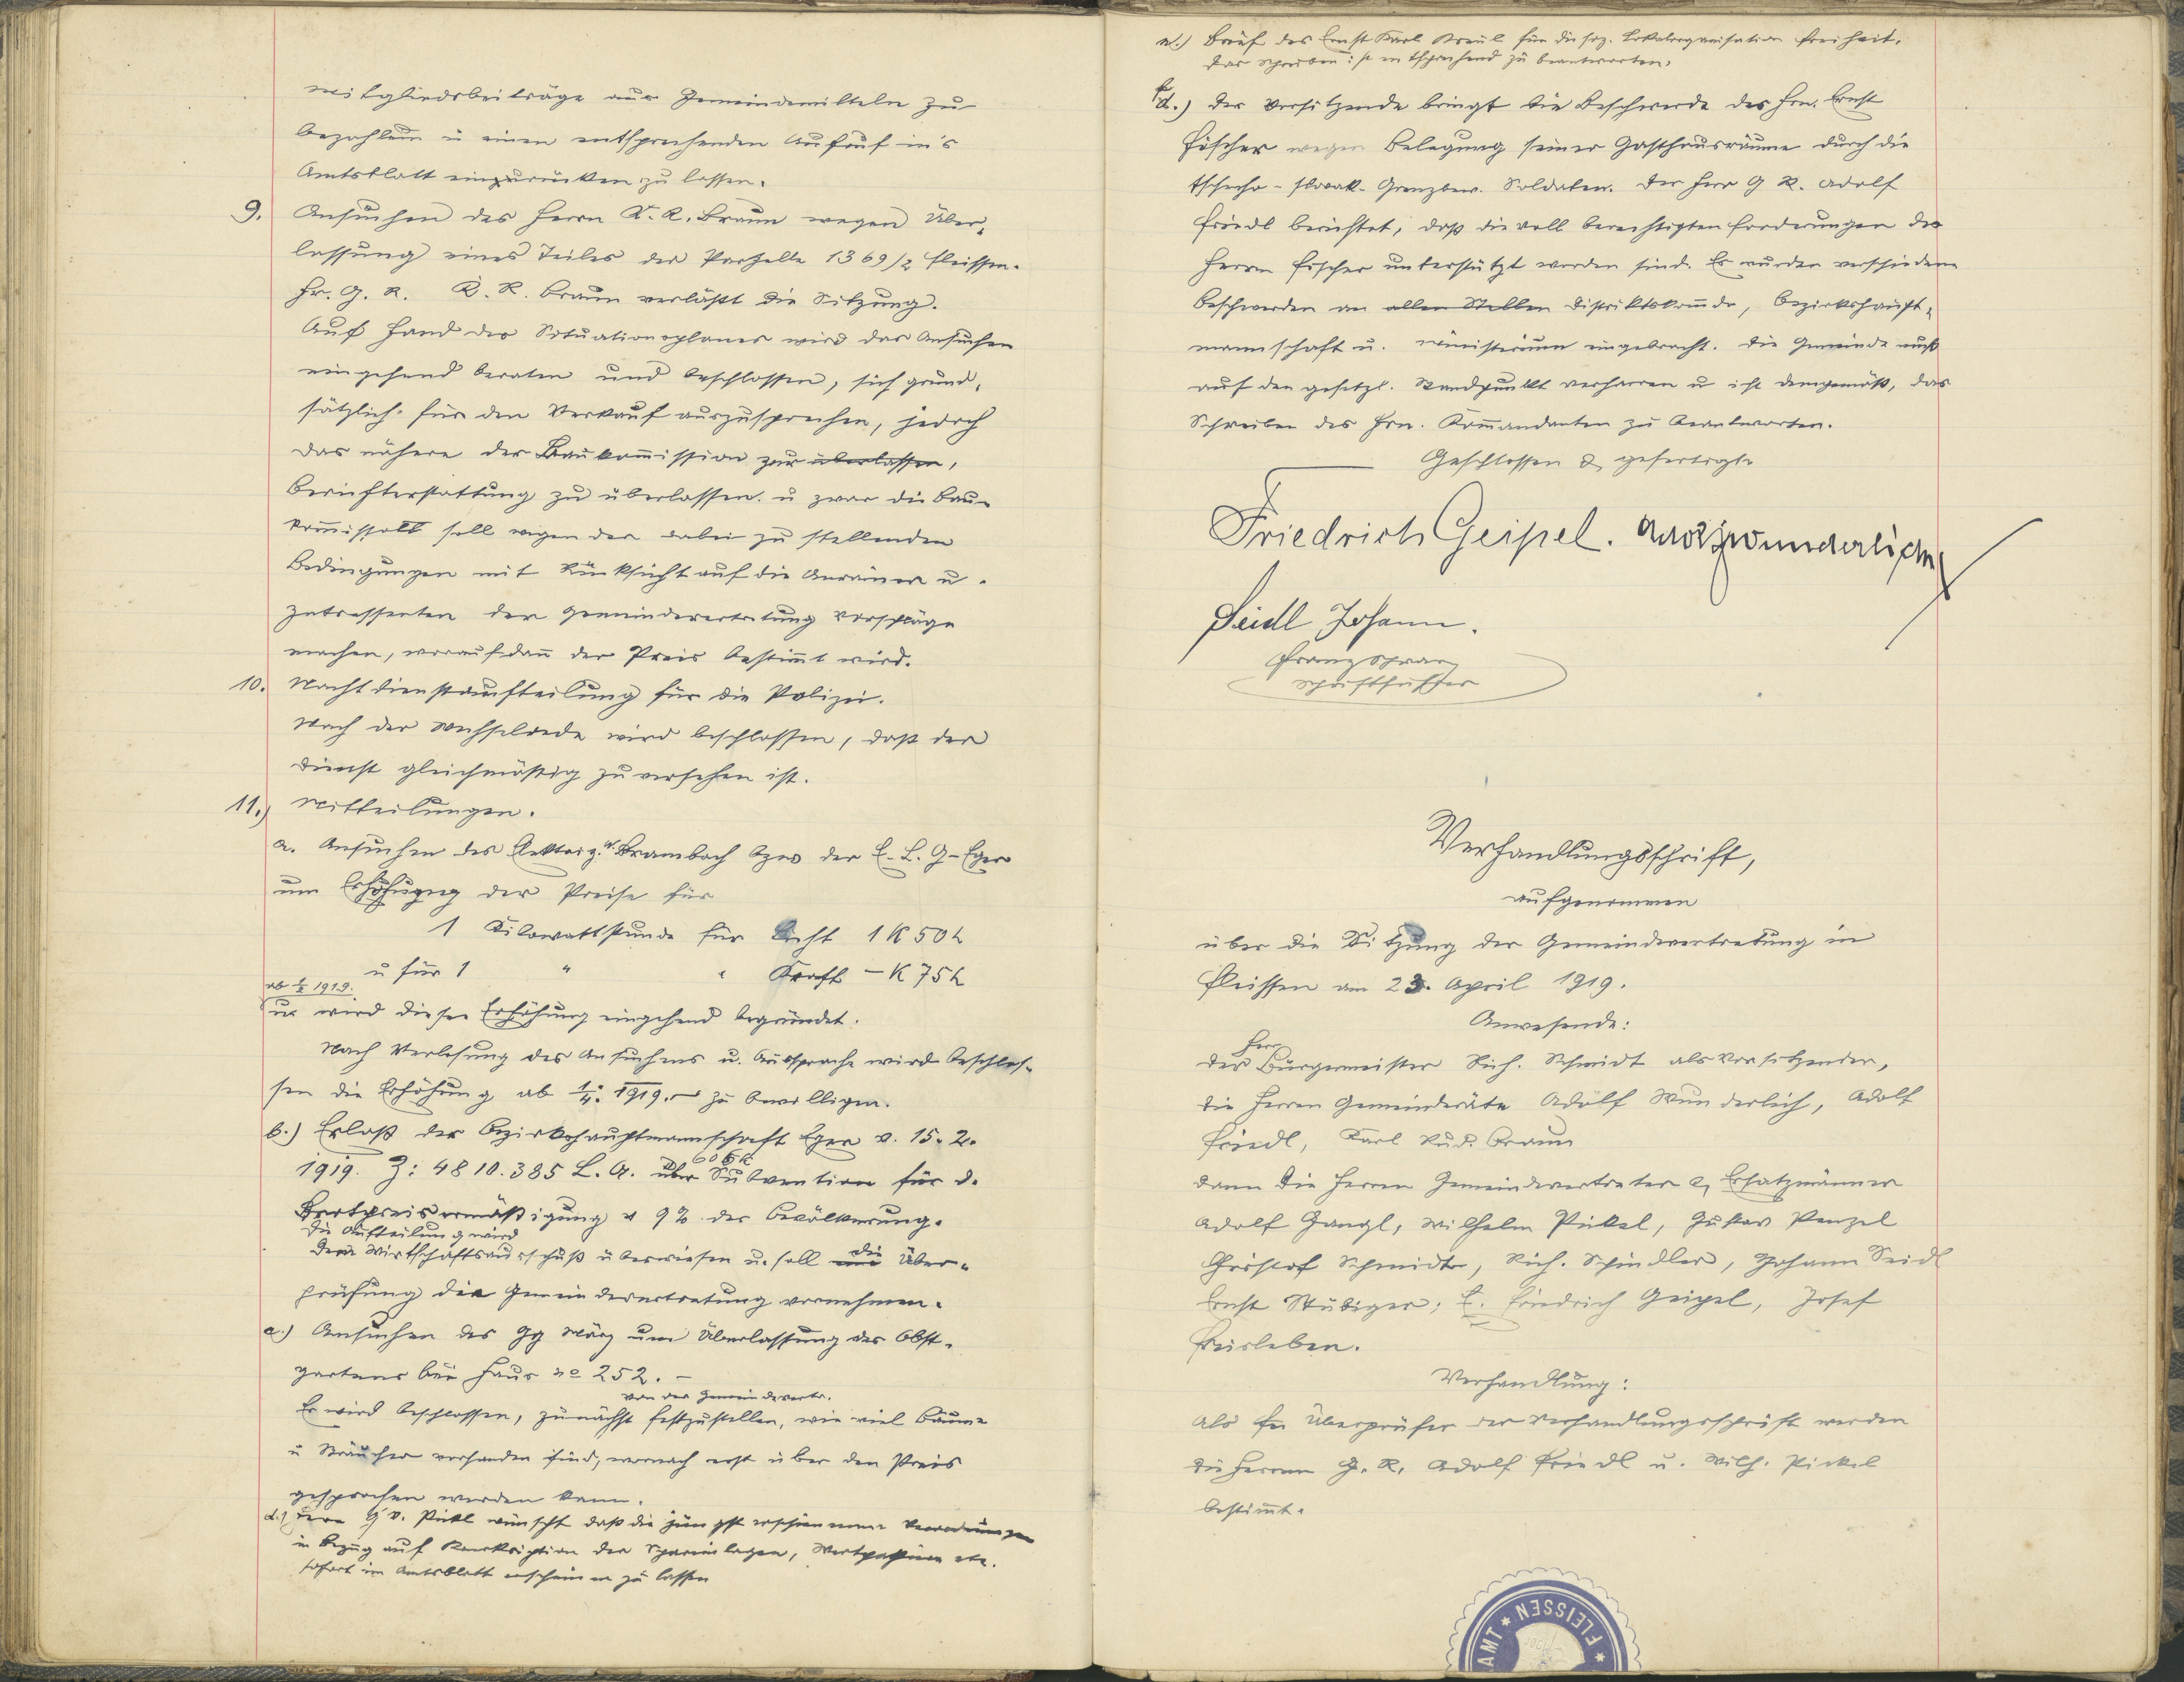 Mitgliedsbeiträge aus Gemeindemitteln zu
bezahlen u einen entsprechenden Aufruf in's
Amtsblatt einzurücken zu lassen.
9. Ansuchen des Herrn K. R. Braun wegen Über-
lassung eines Teiles der Parzelle 1369/2 Fleissen.
Hr. G. R. K. R. Braun verläßt die Sitzung.
Auf Hand des Situationsplanes wird das Ansuchen
eingehend beraten und beschlossen, sich grund-
sätzlich für den Verkauf auszusprechen, jedoch
das nähere der Baukommission zur überlassen,
Berichterstattung zu überlassen. u zwar die Bau-
soll wegen der dabei zu stellenden
Bedingungen mit Rücksicht auf die Anrainer u.
Interessenten der Gemeindevertretung Vorschläge
machen, worauf dann der Preis bestimmt wird.
10. Nachtdienstaufteilung für die Polizei.
Nach der Wechselrede wird beschlossen, daß der
Dienst gleichmäßig zu versehen ist.
11.) Mitteilungen.
a. Ansuchen des Elektriz. W. Brambach bzw der E. L. G-Eger
um Erhöhung der Preise für
1 Kilowattstunde für Licht 1 K 50 h
u für 1 " " Kraft – K 75 h
ab 1/4 1919.
u. wird diese Erhöhung eingehend begründet.
Nach Verlesung des Ansuchens u. Aussprache wird beschlos-
sen die Erhöhung ab 1/4. 1919. – zu bewilligen.
b.) Erlaß der Bezirkshauptmannschaft Eger v. 15. 2.
1919. Z: 4810.385 L. A. über Subvention für d.
Brotpreisermäßigung v 9% der Bevölkerung.
Die Aufteilung wird
dem Wirtschaftsausschuß überwiesen u. soll die Über-
prüfung die Gemeindevertretung vornehmen.
c.) Ansuchen des Gg März um Überlassung des Obst-
gartens bei Haus No 252. –
von der Gemeindevertr.
Es wird beschlossen, zunächst festzustellen, wie viel Bäume
u Sträucher vorhanden sind, wornach erst über den Preis
gesprochen werden kann.
d.) Herr G V. Pickl wünscht daß die jüngst erschienenen Verordnungen
in Bezug auf Konskription der Spareinlagen, Wertpapiere etc.
sofort im Amtsblatt erscheinen zu lassen
e.) Brief des Ernst Karl Kreul für die soz. Lokalorganisation Freiheit.
Das Schreiben ist entsprechend zu beantworten.
f.) Der Vorsitzende bringt die Beschwerde des Hrn. Ernst
Fischer wegen Belegung seiner Gasthausräume durch die
tschecho-slovak. Grenzbew. Soldaten. Der Herr G R. Adolf
Friedl berichtet, daß die voll berechtigten Forderungen des
Herrn Fischer unterstützt worden sind. Es wurden verschiedene
Beschwerden an allen Stellen Distriktskomdo, Bezirkshaupt-
mannschaft u. Ministerium eingebracht. Die Gemeinde muß
auf den gesetzl. Standpunkt verharren u ist demgemäß, das
Schreiben des Hrn. Kommandanten zu beantworten.
Geschlossen & gefertigt
Friedrich Geipel. Adolf Wunderlich
Seidl Johann.
Franz
Schriftführer
Verhandlungsschrift,
aufgenommen
über die Sitzung der Gemeindevertretung in
Fleissen am 23. April 1919.
Anwesende:
Herr
der Bürgermeister Rich. Schmidt als Vorsitzender,
die Herren Gemeinderäte Adolf Wunderlich, Adolf
Friedl, Karl Rud. Braun
dann die Herren Gemeindevertreter & Ersatzmänner
Adolf Gangl, Wilhelm Pickel, Gustav Penzel
Christof Schmidt, Rich. Schindler, Johann Seidl
Ernst Stübiger; E. Friedrich Geipel, Josef
Freisleben.
Verhandlung:
Als Überprüfer der Verhandlungsschrift werden
die Herren G. R. Adolf Friedl u. Wilh. Pickel
bestimmt.
AMT * FLEISSEN *